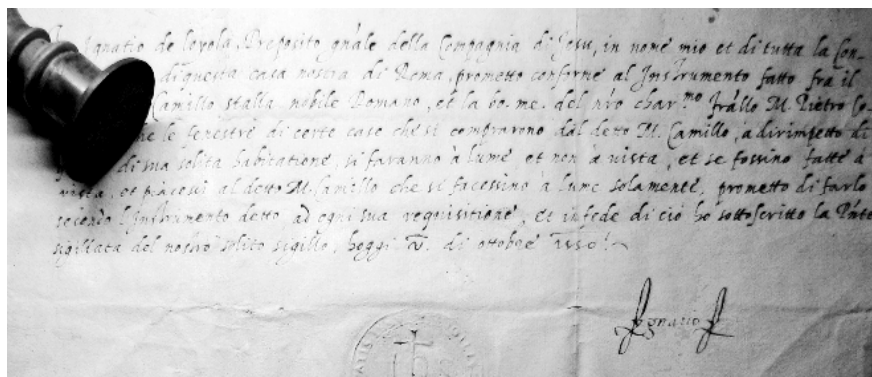 Ignatio de loyola, Preposito gn̄ale della Compagnia di Jesu, in nome mio et di tutta la Con-
di questa casa nostra di Roma, prometto conforme al Instrumento fatto fra il
Camillo stalla nobile Romano, et la bo. me. del nr̄o char.mo fr̄allo M. Pietro Co-
che le fenestre di certe case che si comprarono dal detto M. Camillo, a dirimpetto di
di sua solita habitatione, si faranno à lume et non à vista, et se fossino fatte à
vista, et piacessi al detto M. Camillo che si facessino à lume solamente, prometto di farlo
secondo l'Instrumento detto ad ogni sua requisitione, et in fede di ciò ho sottoscritto la
sigillata del nostro solito sigillo, hoggi di ottobre
Ignatio